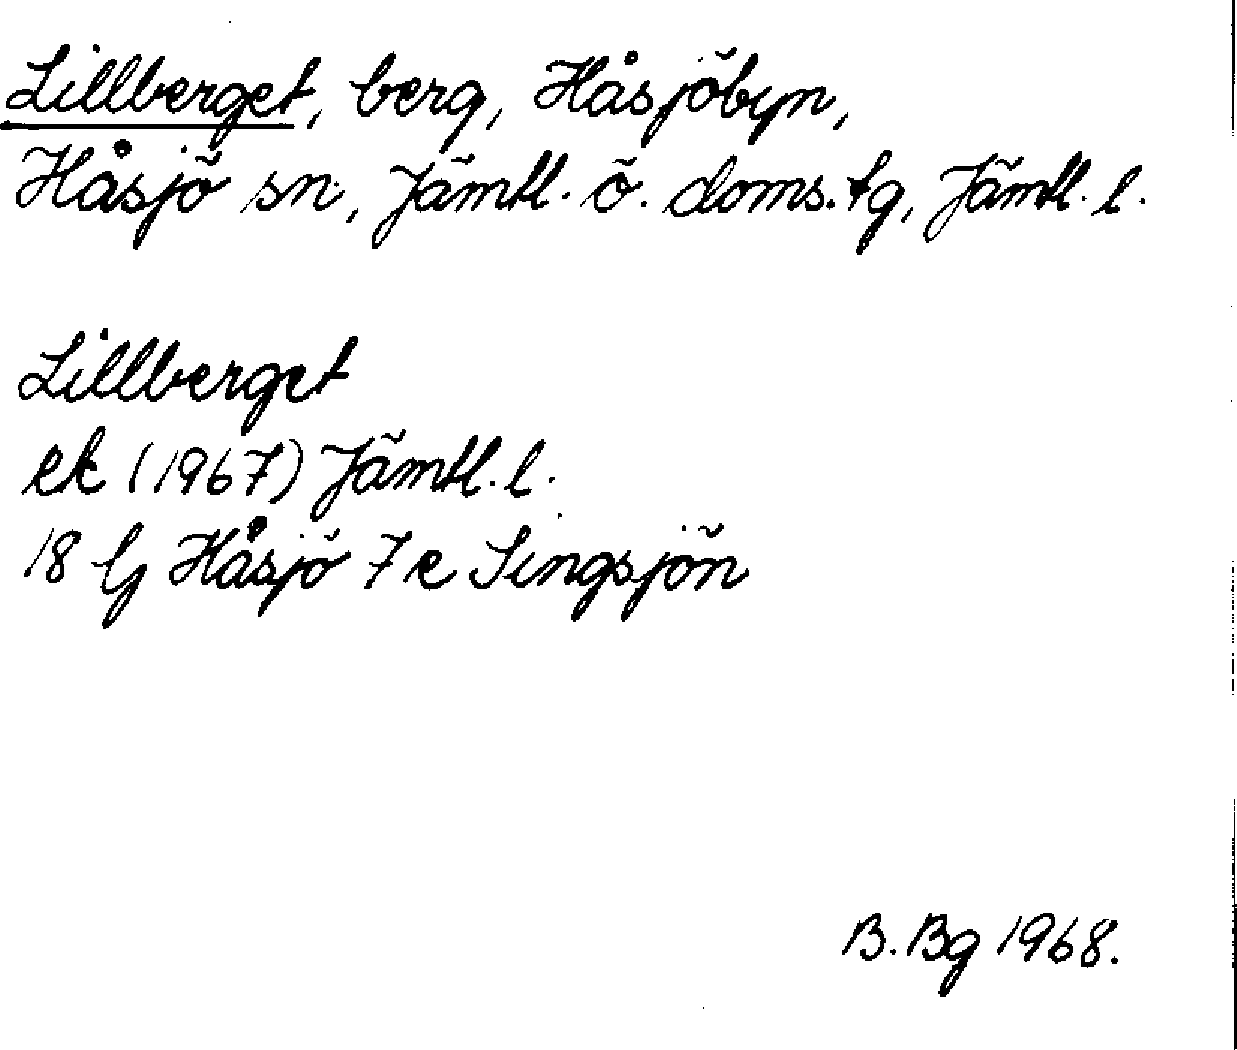 Lillberget, berg, Håsjöbyn,
Håsjö sn, Jämtl. ö. doms. tg, Jämtl. l.
Lillberget
ek (1967) Jämtl. l.
18 G Håsjö 7 e Singsjön
B. Bg 1968.